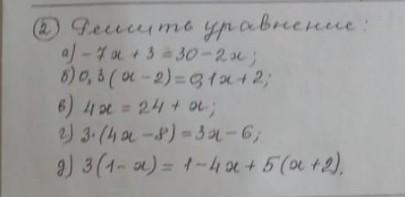 ② Решить уравнение:
а) -7x + 3 = 30 - 2x;
б) 0,3(x - 2) = 0,1x + 2;
в) 4x = 24 + x;
г) 3·(4x - 8) = 3x - 6;
д) 3(1 - x) = 1 - 4x + 5(x + 2).